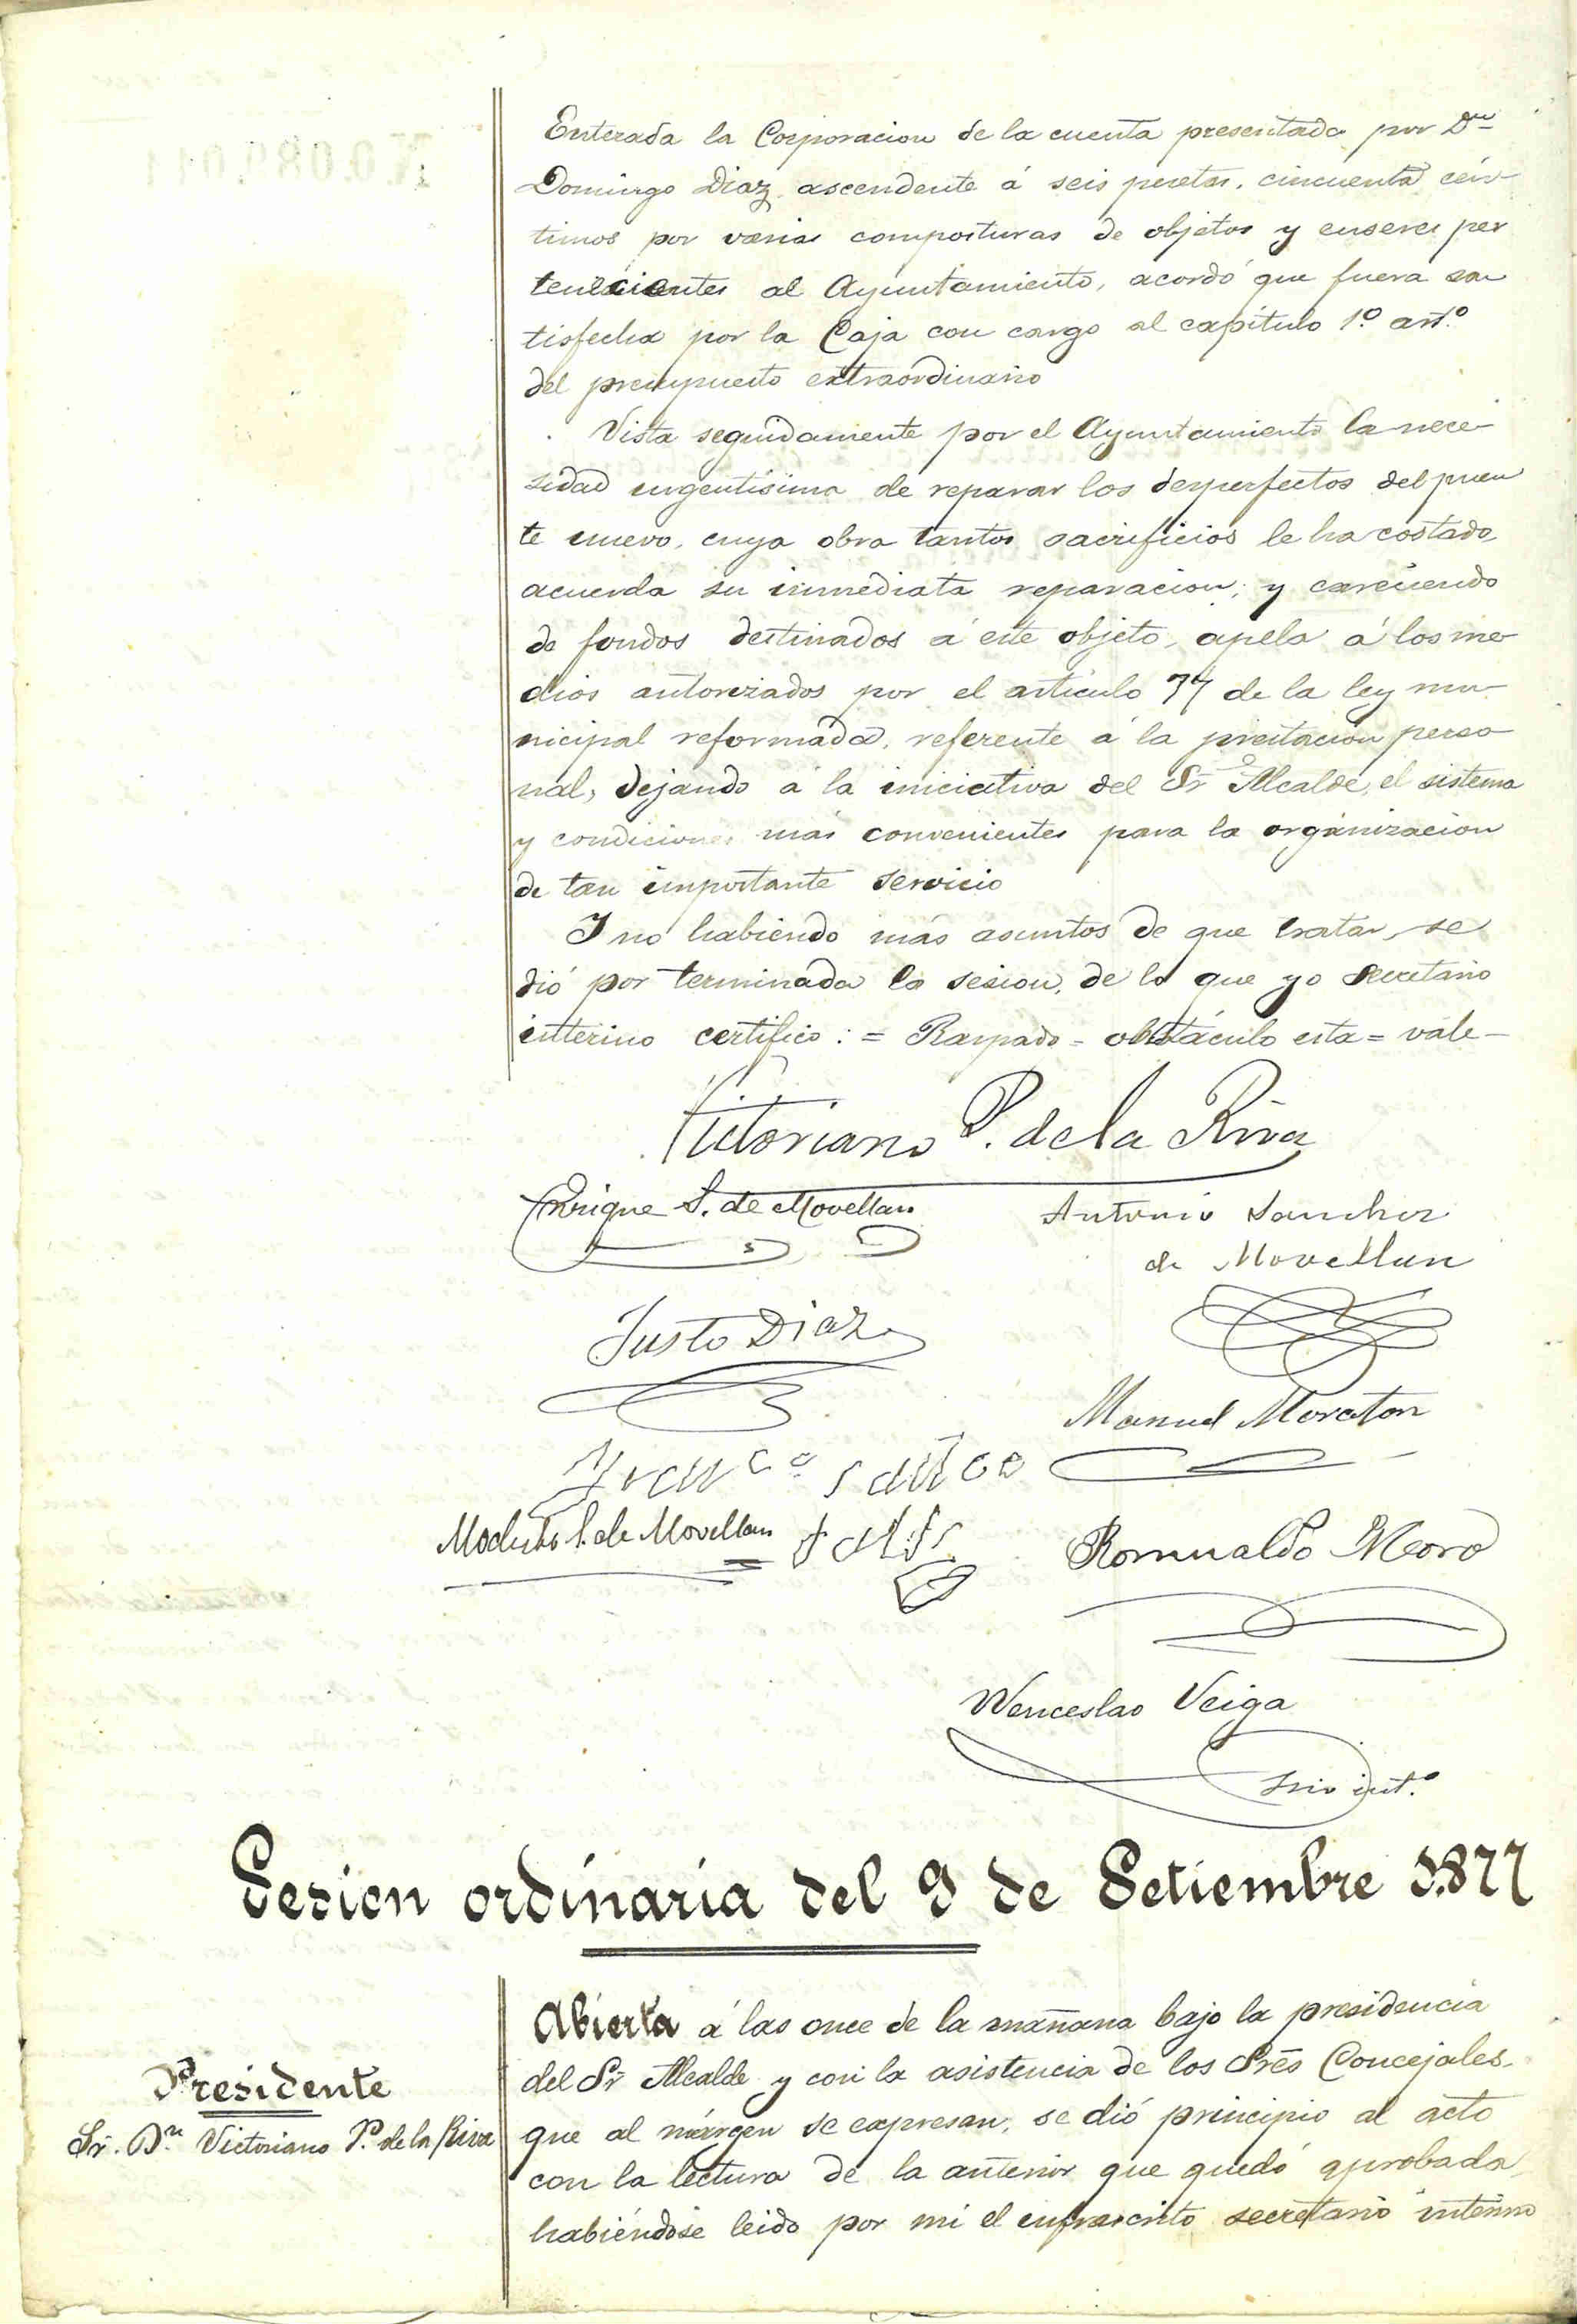 Enterada la Corporacion de la cuenta presentada por Dn
Domingo Diaz ascendente á seis pesetas, cincuenta cén-
timos por varias composturas de objetos y enseres per
tenecientes al Ayuntamiento, acordó que fuera sa
tisfecha por la Caja con cargo al capítulo 1º artº
del presupuesto extraordinario
Vista seguidamente por el Ayuntamiento la nece-
sidad urgentísima de reparar los desperfectos del puen
te nuevo, cuya obra tantos sacrificios le ha costado,
acuerda su inmediata reparacion; y careciendo
de fondos destinados á este objeto, apela á los me
dios autorizados por el artículo 77 de la ley mu-
nicipal reformada, referente á la prestacion perso
nal, dejando á la iniciativa del Sr Alcalde, el sistema
y condiciones más convenientes para la organizacion
de tan importante servicio
Y no habiendo más asuntos de que tratar, se
dió por terminada la sesion, de lo que yo Secretario
interino certifico: = Raspado = obstáculo esta = vale -
Victoriano P. de la Riva
Enrique S. de Movellan
Antonio Sanchez
de Movellan
Justo Diaz
Manuel Moraton
Franco
Modesto S. de Movellan
Romualdo Moro
Wenceslao Veiga
Srio int.º
Sesion ordinaria del 9 de Setiembre 1.877
Presidente
Sr. Dn Victoriano P. de la Riva
Abierta á las once de la mañana bajo la presidencia
del Sr Alcalde y con la asistencia de los Sres Concejales
que al márgen se expresan, se dió principio al acto
con la lectura de la anterior que quedó aprobada,
habiéndose leido por mi el infrascrito secretario interino